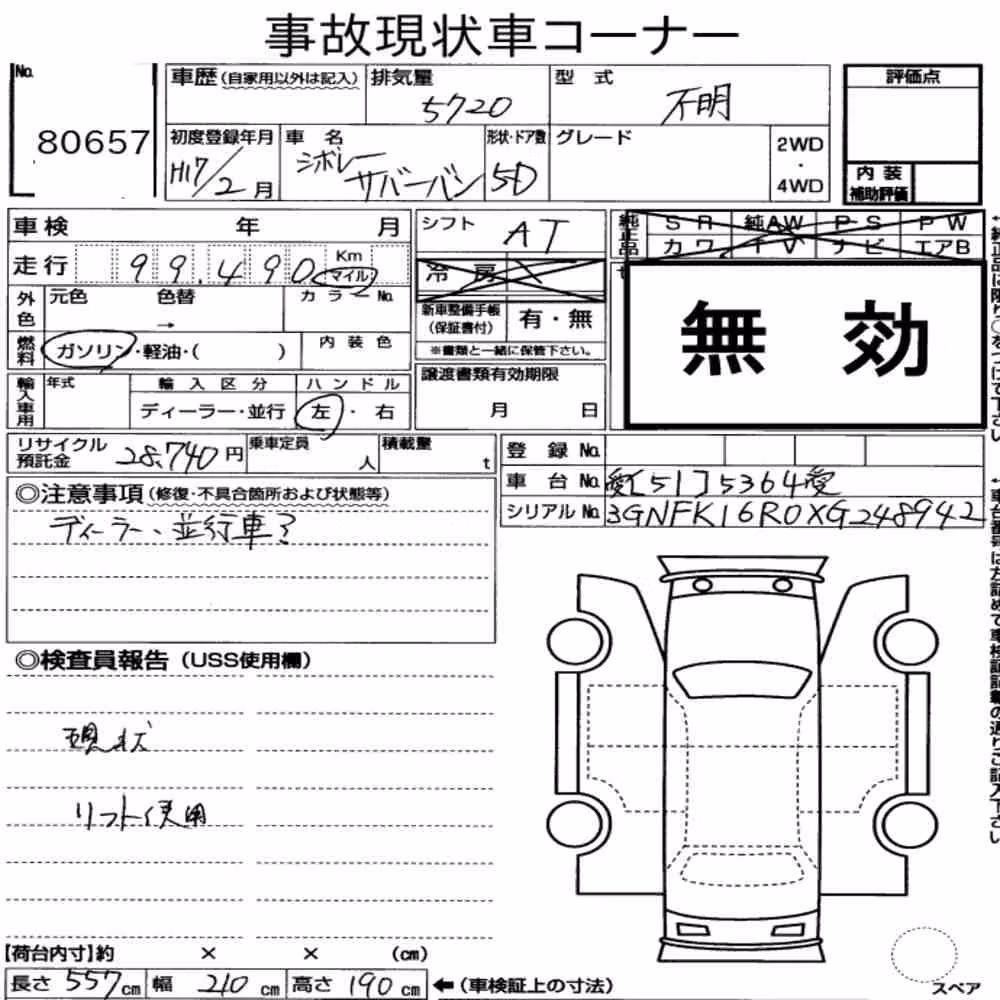 事故現状車コーナー
No. 80657
車歴(自家用以外は記入)
排気量 5720
型式 不明
評価点
初度登録年月 H17/2月
車名 シボレー サバーバン
形状・ドア数 5D
グレード
2WD
・
4WD
内装
補助評価
車検 年 月
走行 99,490 Km マイル
外色 元色 色替 → カラーNo.
燃料 ガソリン・軽油・( )
内装色
輸入車用 年式 輸入区分 ハンドル
ディーラー・並行 左・右
シフト AT
冷房
新車整備手帳
(保証書付) 有・無
※書類と一緒に保管下さい。
譲渡書類有効期限
月 日
純正品 SR 純AW PS PW
カワ TV ナビ エアB
無効
リサイクル
預託金 28,740円
乗車定員 人
積載量 t
登録No.
車台No. 愛[51]5364愛
シリアルNo. 3GNFK16R0XG248942
◎注意事項(修復・不具合箇所および状態等)
ディーラー、並行車?
◎検査員報告(USS使用欄)
現状
リフト使用
【荷台内寸】約 × × (cm)
長さ 557cm 幅 210cm 高さ 190cm ←(車検証上の寸法)
スペア